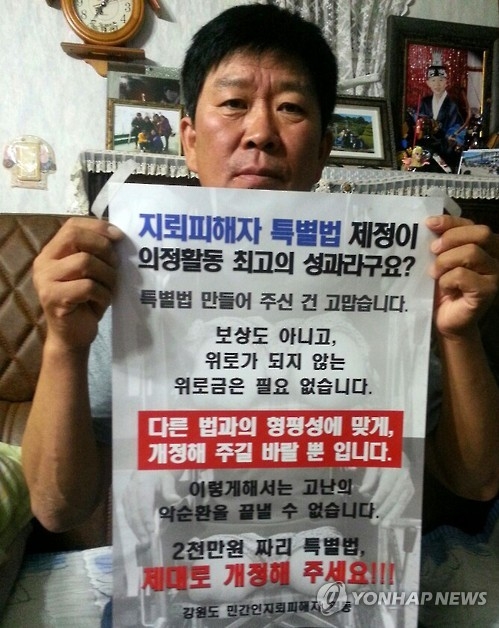 지뢰피해자 특별법 제정이
의정활동 최고의 성과라구요?
특별법 만들어 주신 건 고맙습니다.
보상도 아니고,
위로가 되지 않는
위로금은 필요 없습니다.
다른 법과의 형평성에 맞게,
개정해 주길 바랄 뿐 입니다.
이렇게해서는 고난의
악순환을 끝낼 수 없습니다.
2천만원 짜리 특별법,
제대로 개정해 주세요!!!
강원도 민간인지뢰피해자
YONHAP NEWS